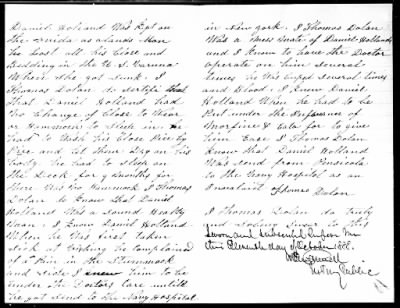 Daniel Holland Was Kept on
the Guida as a lands Man
he Lost all his Close and
Bedding in the U S Varuna
When She got Sunk. I
Thomas Dolan do sertify that
that Daniel Holland had
no Change of Close to Wear
or Hammock to Sleep in
had to Wash his Close Nite by
and let them Dry on his
Body. he had to Sleep on
the Deck for 9 Months for
there Was no Hammock I Thomas
Dolan do Know that Daniel
Holland Was a Sound Healthy
Man. I Know Daniel Holland
When he Was first taken
Sick at he Complained
of a Pain in the Stummock
and Side I knew him to be
under the Doctors Care untill
he got Send to the Navy Hospital
in New York. I Thomas Dolan
Was a Mess Mate of Daniel Holland
and I Know to have the Doctor
operate on him Several
times he Was Cuped Several times
and Blead. I Knew Daniel
Holland When he had to be
Put under the Influence of
Morfine to give
him Ease I Thomas Dolan
Know that Daniel Holland
Was Send from Pensicola
to the Navy Hospital as an
Invalid Thomas Dolan
I Thomas Dolan do truly
and Swear to this
Sworn and subscribed before me
this Eleventh day of October 188
Notary Public